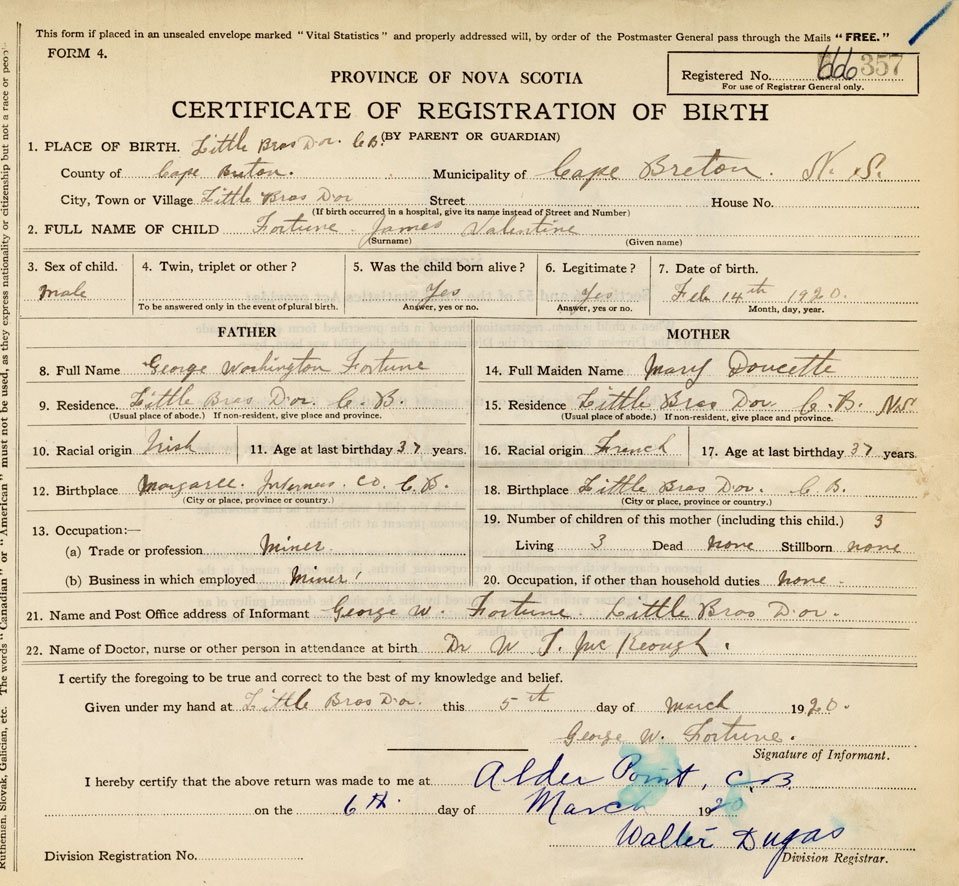 This form if placed in an unsealed envelope marked "Vital Statistics" and properly addressed will, by order of the Postmaster General pass through the Mails "FREE."
FORM 4.
Registered No. 357
For use of Registrar General only.
PROVINCE OF NOVA SCOTIA
CERTIFICATE OF REGISTRATION OF BIRTH
(BY PARENT OR GUARDIAN)
1. PLACE OF BIRTH. Little Bras D'or. C.B.
County of Cape Breton. Municipality of Cape Breton. N.S.
City, Town or Village Little Bras D'or Street House No.
(If birth occurred in a hospital, give its name instead of Street and Number)
2. FULL NAME OF CHILD Fortune James Valentine
(Surname) (Given name)
3. Sex of child. 4. Twin, triplet or other? 5. Was the child born alive? 6. Legitimate? 7. Date of birth.
Male Yes Yes Feb 14th 1920.
To be answered only in the event of plural birth. Answer, yes or no. Answer, yes or no. Month, day, year.
FATHER MOTHER
8. Full Name George Washington Fortune 14. Full Maiden Name Mary Doucette
9. Residence. Little Bras D'or. C.B. 15. Residence Little Bras D'or C.B. N.S.
(Usual place of abode.) If non-resident, give place and province. (Usual place of abode.) If non-resident, give place and province.
10. Racial origin Irish 11. Age at last birthday 37 years. 16. Racial origin French 17. Age at last birthday 37 years.
12. Birthplace Margaree. Inverness. Co. C.B. 18. Birthplace Little Bras D'or. C.B.
(City or place, province or country.) (City or place, province or country.)
13. Occupation:— 19. Number of children of this mother (including this child.) 3
(a) Trade or profession Miner. Living 3 Dead none Stillborn none
(b) Business in which employed Miner 20. Occupation, if other than household duties none.
21. Name and Post Office address of Informant George W. Fortune. Little Bras D'or.
22. Name of Doctor, nurse or other person in attendance at birth Dr W T. McKeough.
I certify the foregoing to be true and correct to the best of my knowledge and belief.
Given under my hand at Little Bras D'or. this 5th day of March 1920.
George W. Fortune.
Signature of Informant.
I hereby certify that the above return was made to me at Alder Point, C.B.
on the 6th. day of March 1920
Walter Dugas
Division Registration No. Division Registrar.
Ruthenian, Slovak, Galician, etc. The words "Canadian" or "American" must not be used, as they express nationality or citizenship but not a race or